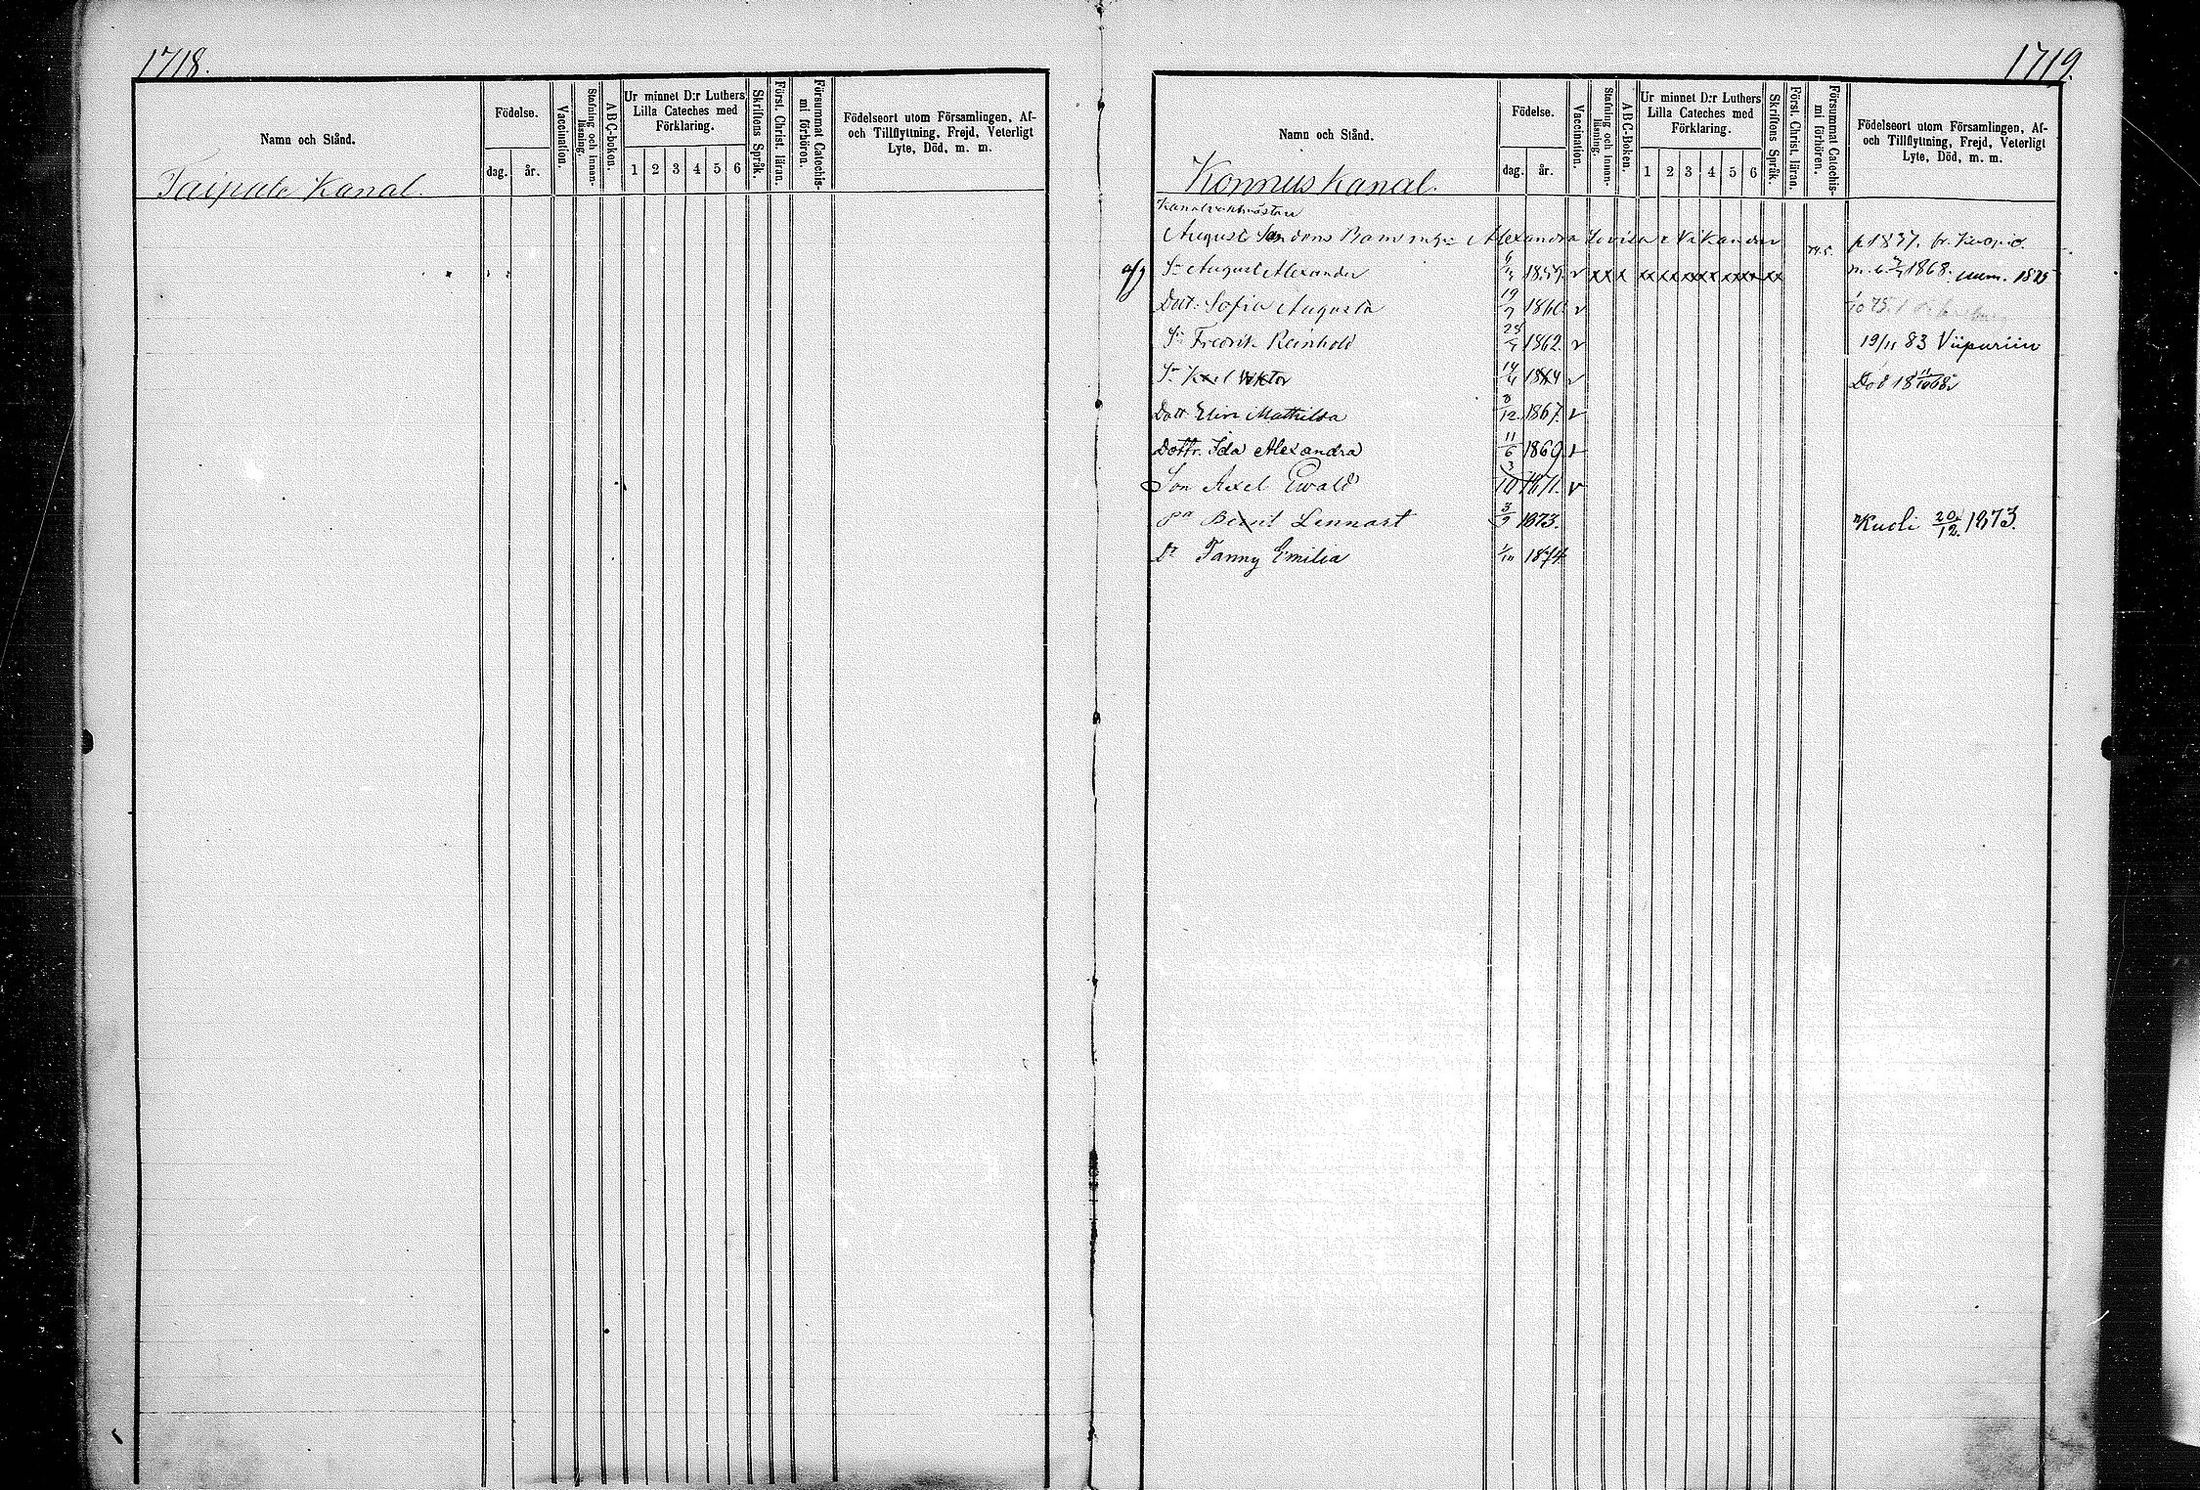 1718.
Namn och Stånd.
Födelse.
dag.
år.
Vaccination.
Stafning och innanläsning.
A B C-boken.
Ur minnet D:r Luthers Lilla Cateches med Förklaring.
1 2 3 4 5 6
Skriftens Språk.
Först. Christ. läran.
Försummat Catechismi förhören.
Födelseort utom Församlingen, Af- och Tillflyttning, Frejd, Veterligt Lyte, Död, m. m.
Taipale Kanal.
1719.
Namn och Stånd.
Födelse.
dag.
år.
Vaccination.
Stafning och innanläsning.
A B C-boken.
Ur minnet D:r Luthers Lilla Cateches med Förklaring.
1 2 3 4 5 6
Skriftens Språk.
Först. Christ. läran.
Försummat Catechismi förhören.
Födelseort utom Församlingen, Af- och Tillflyttning, Frejd, Veterligt Lyte, Död, m. m.
Konnus Kanal.
August Barn Alexandra Lovisa 1837. fr. Kuopio.
Sn August Alexander 1859. v x x x 1868. num. 1875
Dott. Sofia Augusta 19/7 1860. v
Sn Fredrik Reinhold 1862. v 19/11 83 Viipuriin
Sn Axel Viktor 14/4 1864 v Död 18
Dott Elin Mathilda 8/12 1867. v
Dottr. Ida Alexandra 11/6 1869. v
Son Axel Ewald 3/10 1871. v
Lennart 3/9 1873. Kuoli 20/12. 1873.
Dr Fanny Emilia 1/10 1874.